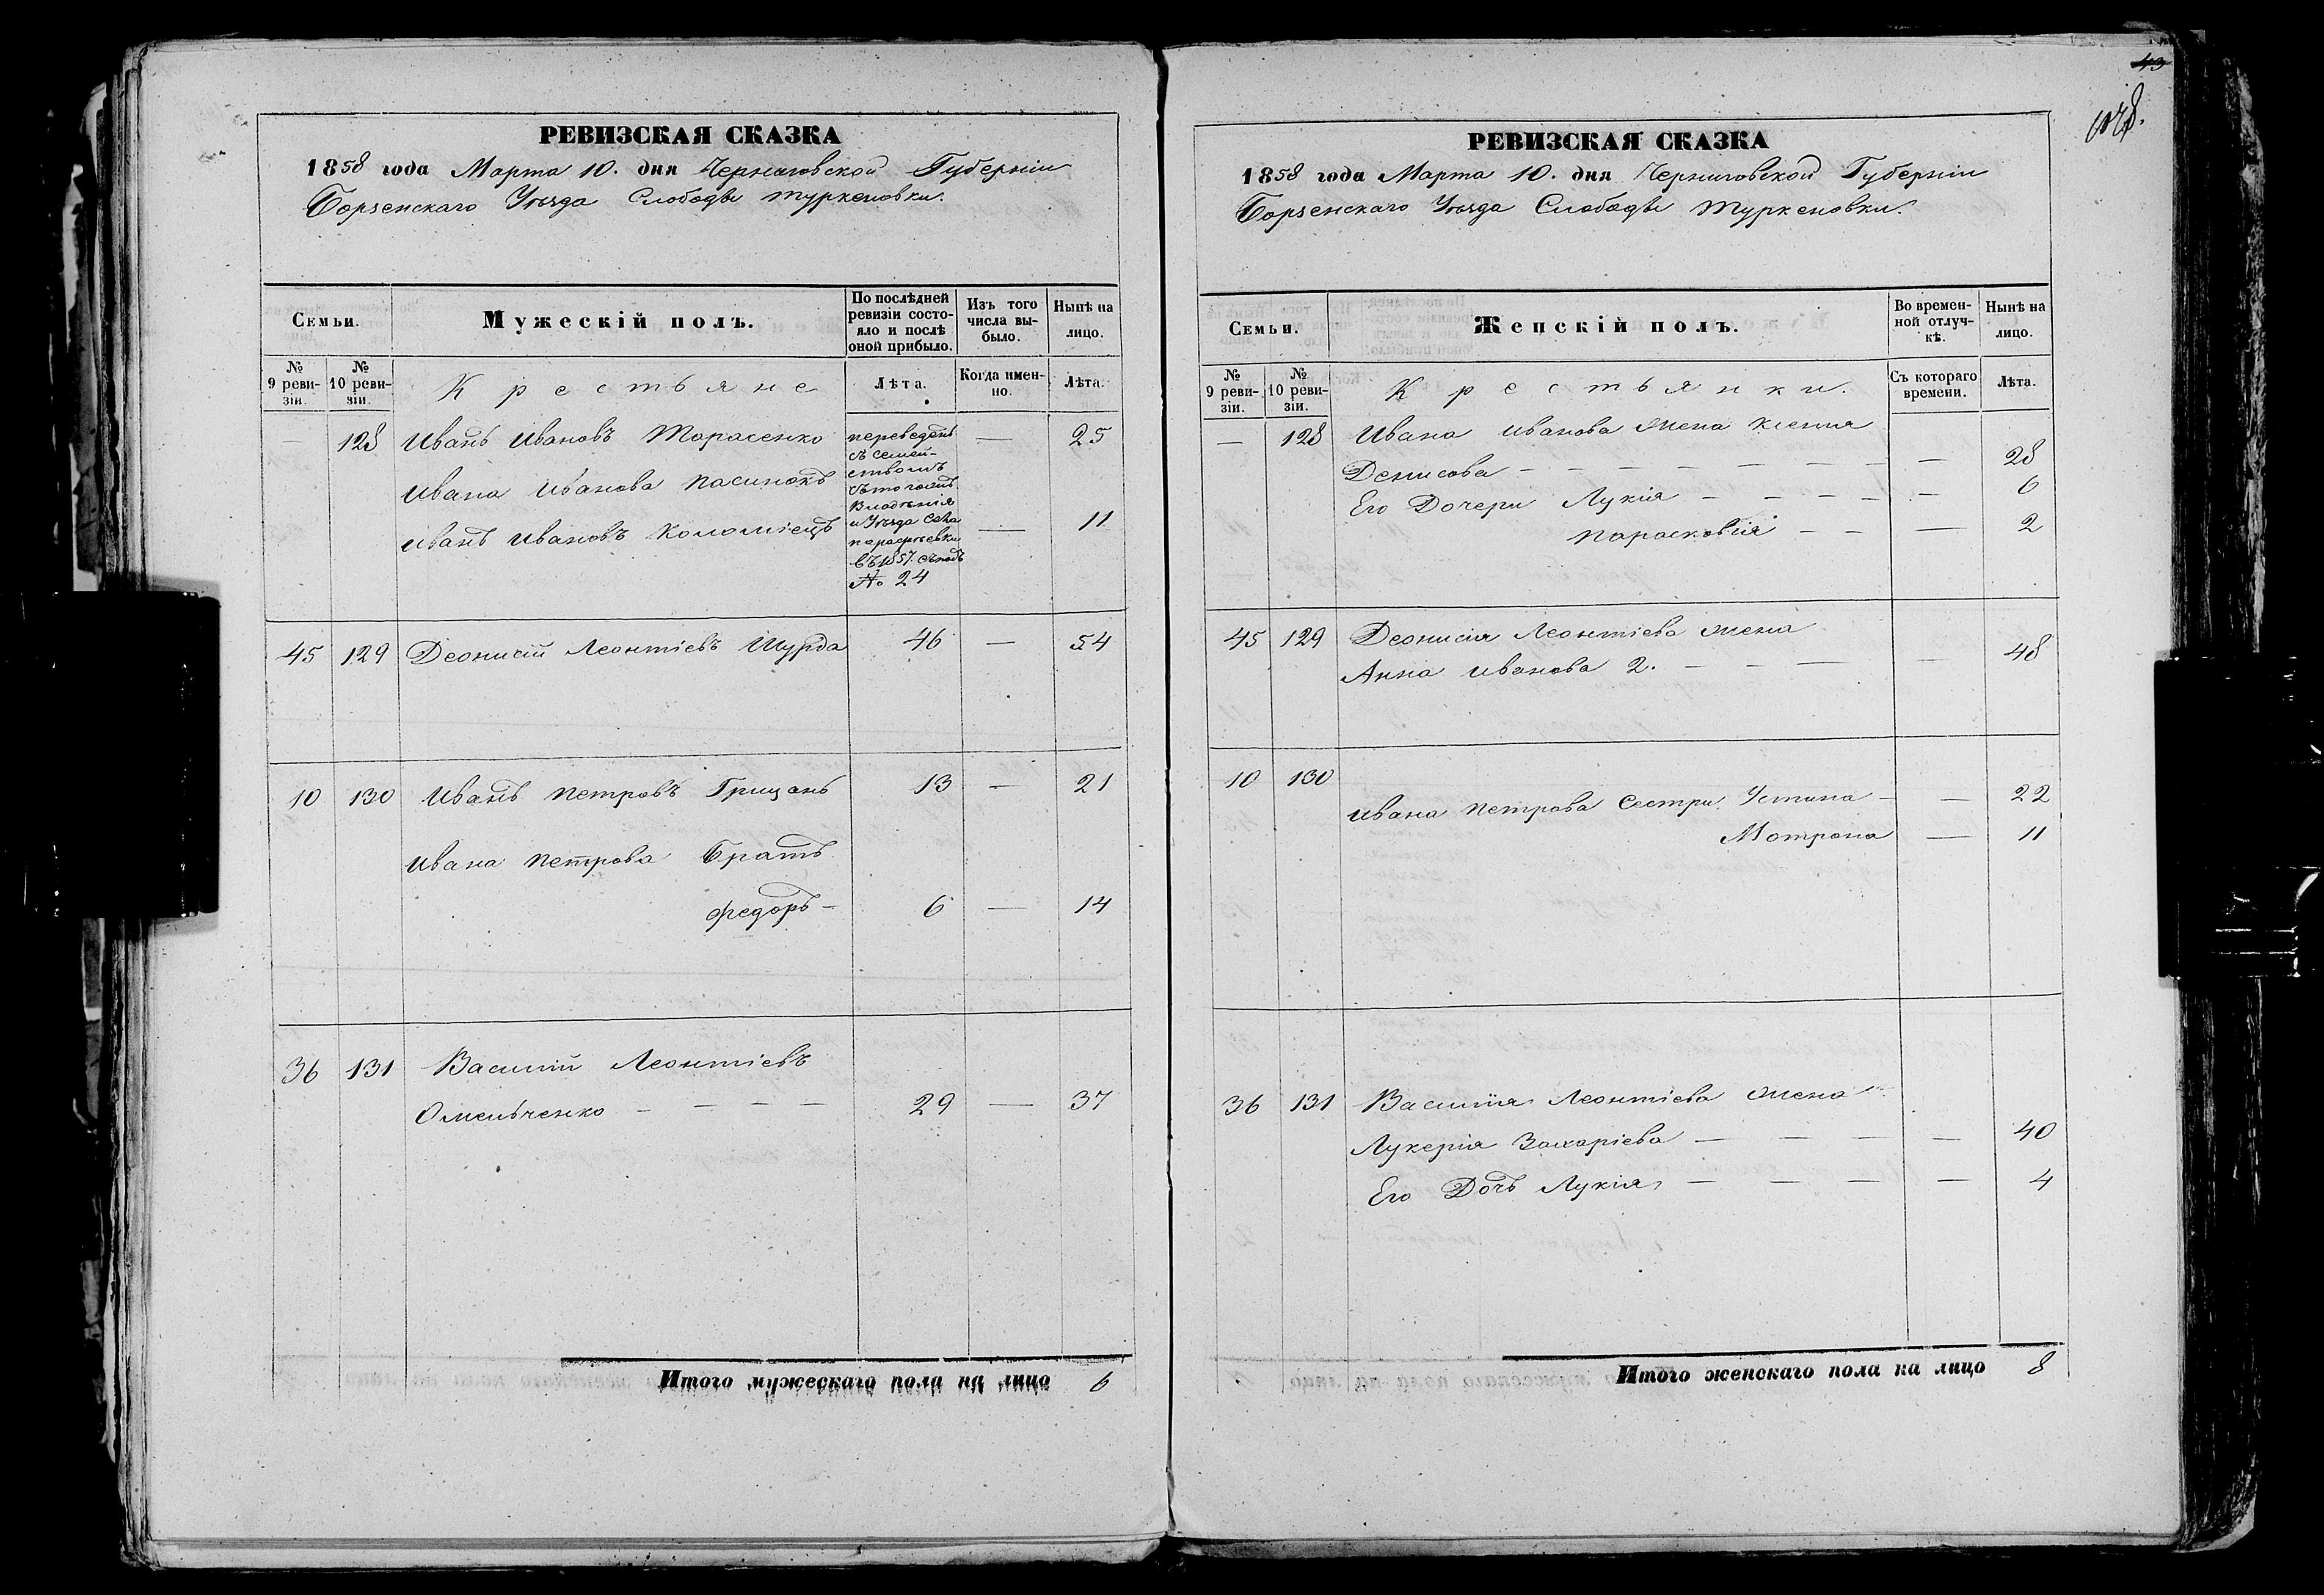 РЕВИЗСКАЯ СКАЗКА
1858 года Марта 10. дня Черниговской Губерніи
Борзенскаго Уѣзда Слободы Туркеновки.
Семьи.
Мужескій полъ.
По послѣдней ревизіи состояло и послѣ оной прибыло.
Изъ того числа выбыло.
Нынѣ на лицо.
№ 9 ревизіи.
№ 10 ревизіи.
Крестьяне
Лѣта.
Когда именно.
Лѣта.
— 128 Иванъ Ивановъ Тарасенко — 25
переведенъ
съ семей-
ствомъ
Ивана Иванова пасинокъ
владѣнія
и Уѣзда села
Иванъ Ивановъ Коломіецъ — 11
въ 1857. съ подъ
№ 24
45 129 Деонисій Леонтіевъ Шурда 46 — 54
10 130 Иванъ Петровъ Грицанъ 13 — 21
Ивана Петрова Братъ
Федоръ — 6 — 14
36 131 Василій Леонтіевъ
Омельченко — — — — 29 — 37
Итого мужескаго пола на лицо 6
43
РЕВИЗСКАЯ СКАЗКА
1858 года Марта 10. дня Черниговской Губерніи
Борзенскаго Уѣзда Слободы Туркеновки.
Семьи.
Женскій полъ.
Во временной отлучкѣ.
Нынѣ на лицо.
№ 9 ревизіи.
№ 10 ревизіи.
Крестьянки.
Съ котораго времени.
Лѣта.
— 128 Ивана Иванова жена Ксенія
Денисова — — — — — — — — 28
Его Дочери Лукія — — — — — 6
Парасковія — — — 2
45 129 Деонисія Леонтіева жена
Анна Иванова 2. — — — — 48
10 130
Ивана Петрова Сестри Устина — — 22
Мотрона — 11
36 131 Василія Леонтіева жена
Лукерія Захаріева — — — — 40
Его Дочь Лукія — — — — 4
Итого женскаго пола на лицо 8